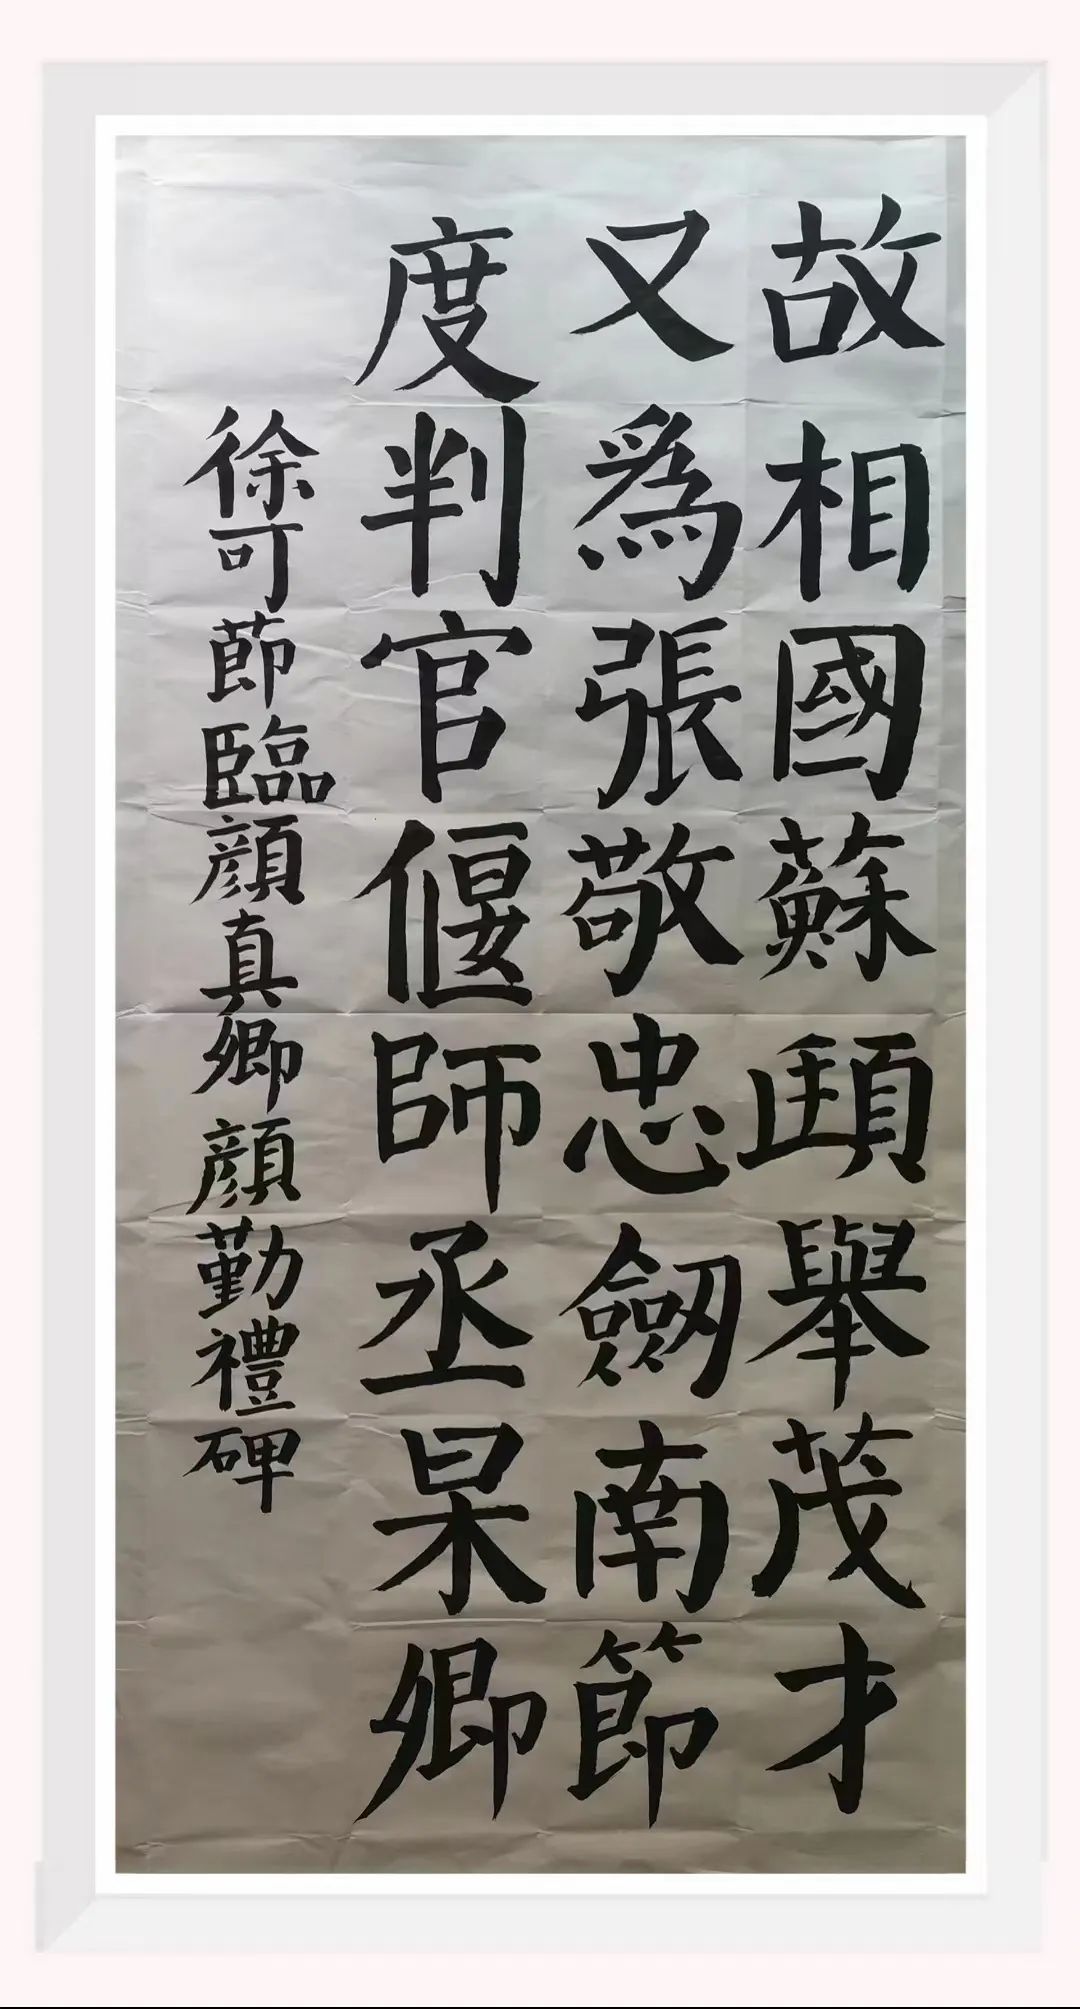 故相國蘇頲舉茂才
又為張敬忠劒南節
度判官偃師丞杲卿
徐可節臨顏真卿顏勤禮碑